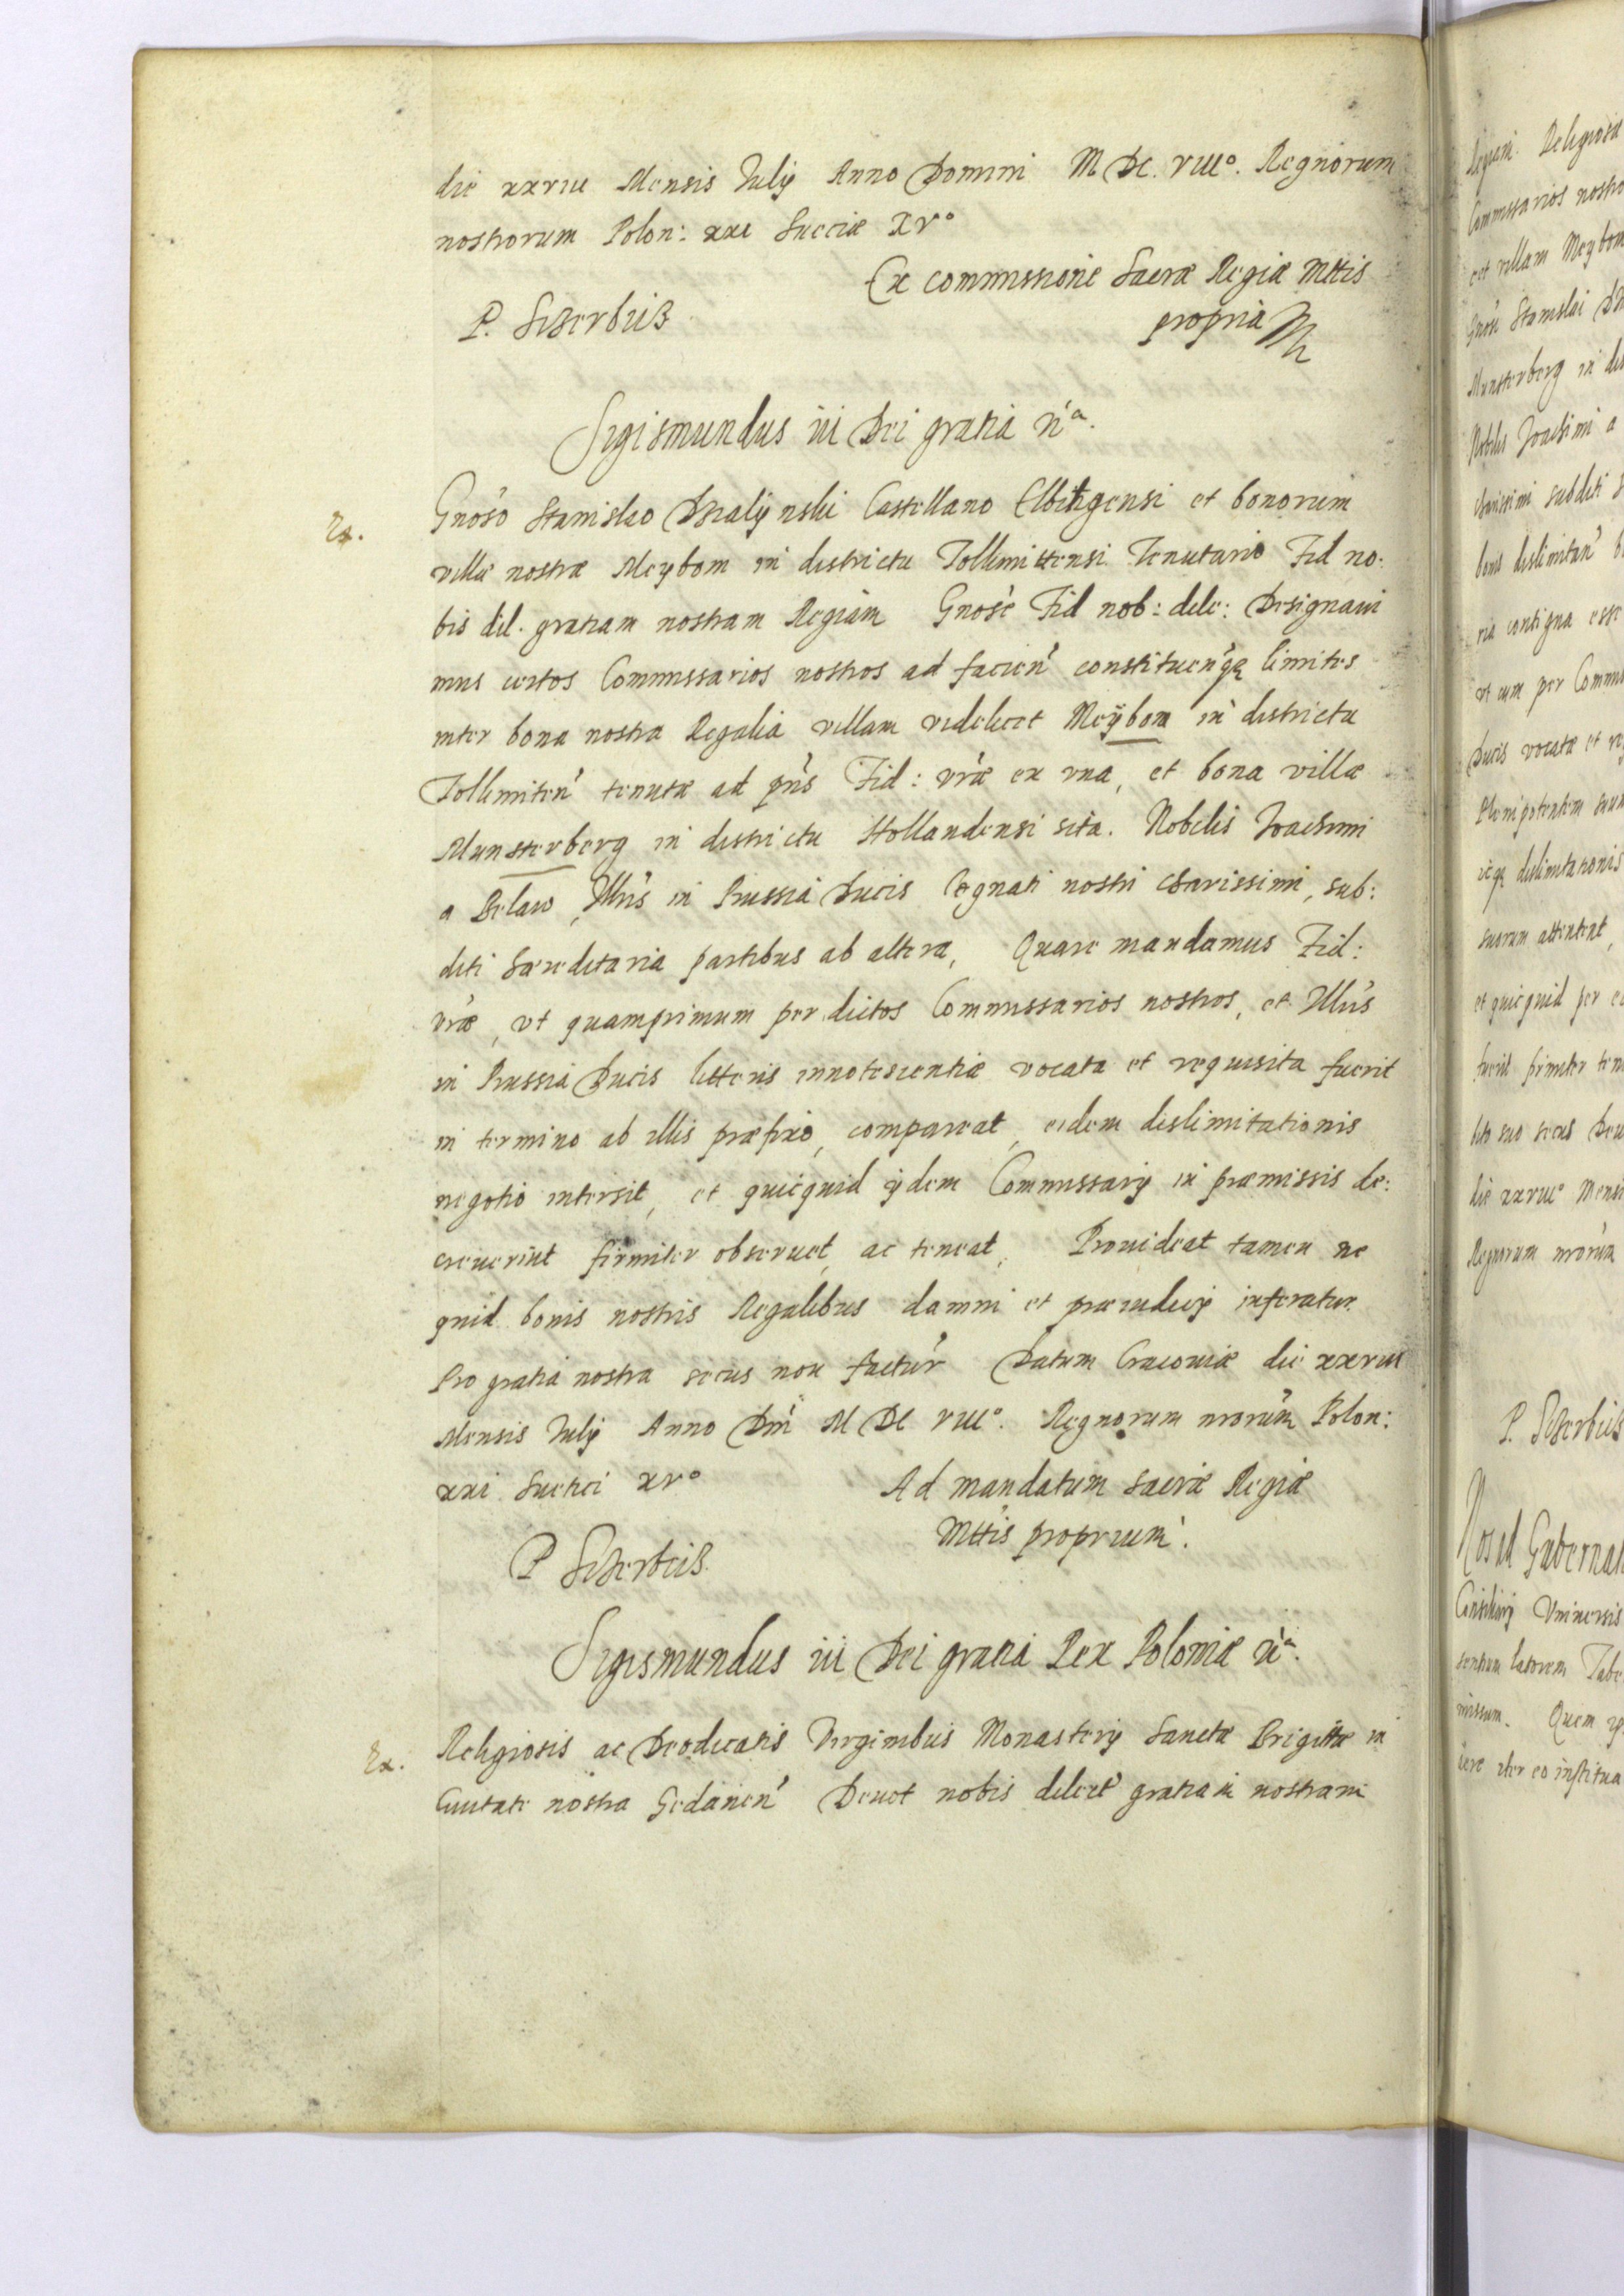 die xxviii Mensis Julij Anno Domini M DC. VIII°. Regnorum
nostrorum Polon: xxi Sueciæ XV°
Ex commissione Sacræ Regiæ Mttis
propria
P. Sczerbiz
Sigismundus iii Dei gratia
Ex.
Gnoso Stanislao Dzialijnski Castellano Elbingensi et bonorum
villæ nostræ Meybom in districtu Tollimittensi Tenutario Fid no:
bis dil. gratiam nostram Regiam Gnose Fid nob: dile: Designaui
mus certos Commissarios nostros ad facien constituenq limites
inter bona nostra Regalia villam videlicet Meÿbom in districtu
Tollimiten tenutæ ad pns Fid: vræ ex vna, et bona villæ
Munsterberg in districtu Hollandensi sita. Nobilis Joachimi
a Belaw, Illus in Prussia Ducis Cognati nostri charissimi, sub:
diti hæreditaria partibus ab altera, Quare mandamus Fid:
vræ, vt quamprimum per dictos Commissarios nostros, et Illus
in Prussia Ducis litteris innotescentiæ vocata et requisita fuerit
in termino ab illis præfixo, compareat, eidem dislimitationis
negotio intersit, et quicquid ijdem Commissarij in præmissis de:
creuerint firmiter obseruet, ac teneat, Prouideat tamen ne
quid bonis nostris Regalibus damni et præiudicij inferatur
Pro gratia nostra secus non factur Datum Cracouiæ die xxviii
Mensis Julij Anno Dni M DC VIII°. Regnorum nrorum Polon:
xxi Suetici xv°
Ad mandatum sacræ Regiæ
Mttis proprium.
P Sczerbiz
Sigismundus iii Dei gratia Rex Poloniæ
Ex.
Religiosis ac Deodicatis Virginibus Monasterij Sanctæ Brigittæ in
Ciuitate nostra Gedanen Deuot nobis dilecte gratiam nostram
Regiam. Religiosæ
Commissarios nostro
et villam Meybom
Gnosi Stanislai Dz
Munsterberg in dis
Nobilis Joachimi a
charissimi subditi
bonis dislimitan
ria contigua esse
vt cum per Commis
Ducis vocatæ et re
Plenipotentem suum
dislimitationis
suorum attentent,
et quicquid per eo
fuerit firmiter tene
bito suo secus
die xxviii° Mensi
Regnorum nrorum
P. Sczerbiz
Nos et Gubernat
Consiliarij Vniuersis
sentium latorem Tabe
missum. Quem
iter eo institua